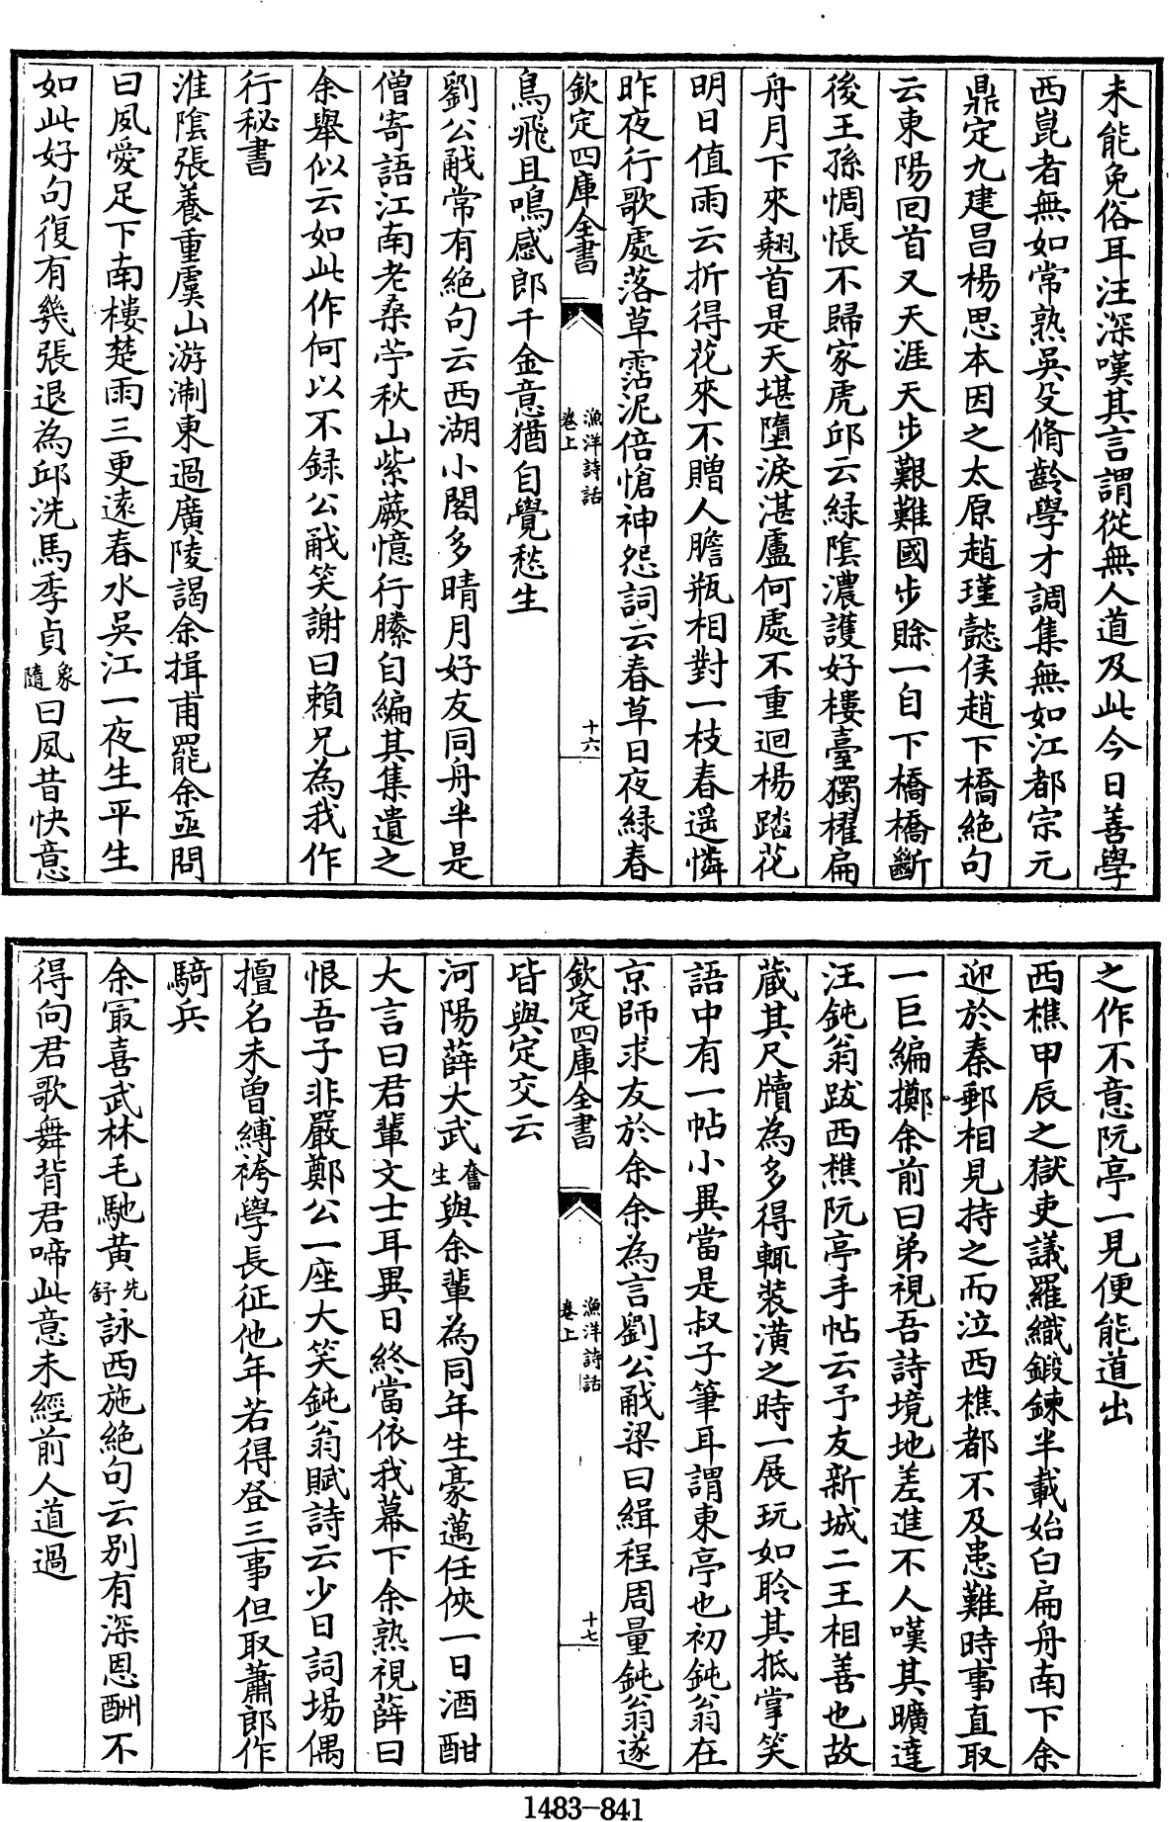 未能免俗耳汪深嘆其言謂從無人道及此今日善學
西崑者無如常熟吳殳脩齡學才調集無如江都宗元
鼎定九建昌楊思本因之太原趙瑾懿侯趙下橋絶句
云東陽回首又天涯天步艱難國步賖一自下橋橋斷
後王孫惆悵不歸家虎邱云緑陰濃護好樓臺獨櫂扁
舟月下來翹首是天堪墮淚湛盧何處不重迴楊踏花
明日值雨云折得花來不贈人膽瓶相對一枝春遥憐
昨夜行歌處落草霑泥倍愴神怨詞云春草日夜緑春
欽定四庫全書
漁洋詩話
卷上
十六
鳥飛且鳴感郎千金意猶自覺愁生
劉公㦷常有絶句云西湖小閣多晴月好友同舟半是
僧寄語江南老桑苧秋山紫蕨憶行縢自編其集遺之
余舉似云如此作何以不録公㦷笑謝曰賴兄為我作
行秘書
淮陰張養重虞山游淛東過廣陵謁余揖甫罷余亟問
曰夙愛足下南樓楚雨三更逺春水吳江一夜生平生
如此好句復有幾張退為邱洗馬季貞象隨曰夙昔快意
之作不意阮亭一見便能道出
西樵甲辰之獄吏議羅織鍛鍊半載始白扁舟南下余
迎於秦郵相見持之而泣西樵都不及患難時事直取
一巨編擲余前曰弟視吾詩境地差進不人嘆其曠達
汪鈍翁跋西樵阮亭手帖云予友新城二王相善也故
蔵其尺牘為多得輒装潢之時一展玩如聆其抵掌笑
語中有一帖小異當是叔子筆耳謂東亭也初鈍翁在
京師求友於余余為言劉公㦷梁曰緝程周量鈍翁遂
欽定四庫全書
漁洋詩話
卷上
十七
皆與定交云
河陽薛大武奮生與余輩為同年生豪邁任俠一日酒酣
大言曰君輩文士耳異日終當依我幕下余熟視薛曰
恨吾子非嚴鄭公一座大笑鈍翁賦詩云少日詞場偶
擅名未曽縛袴學長征他年若得登三事但取蕭郎作
騎兵
余冣喜武林毛馳黄先舒詠西施絶句云别有深恩酬不
得向君歌舞背君啼此意未經前人道過
1483-841